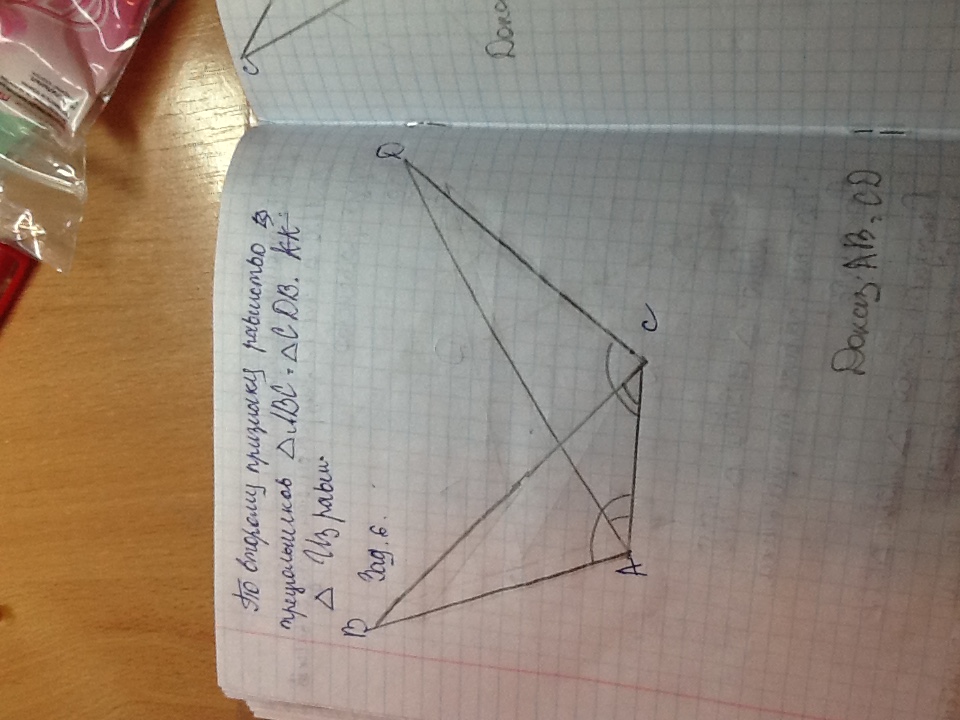 По второму признаку равнстью
треугольников △ABC = △CDB. КК:
△ Из равн.
Зад. 6.
B
D
A
C
Доказ: AB = CD
C
Дока